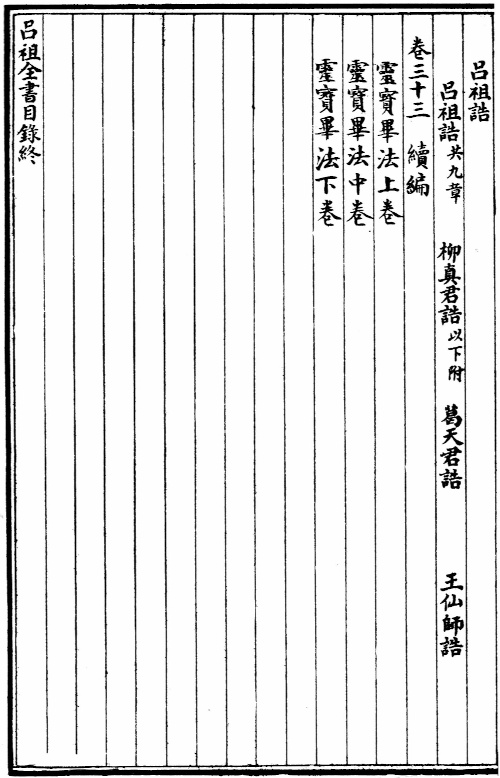 呂祖誥
呂祖誥共九章 柳真君誥以下附 葛天君誥 王仙師誥
卷三十三 續編
靈寶畢法上卷
靈寶畢法中卷
靈寶畢法下卷
呂祖全書目錄終